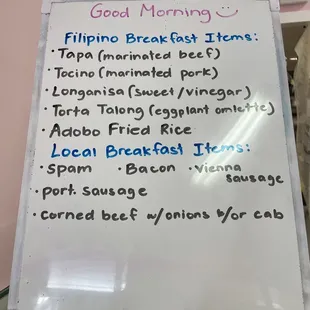 Good Morning
Filipino Breakfast Items:
• Tapa (marinated beef)
• Tocino (marinated pork)
• Longanisa (sweet/vinegar)
• Torta Talong (eggplant omlette)
• Adobo Fried Rice
Local Breakfast Items:
• Spam • Bacon • Vienna sausage
• port. sausage
• corned beef w/onions &/or cab